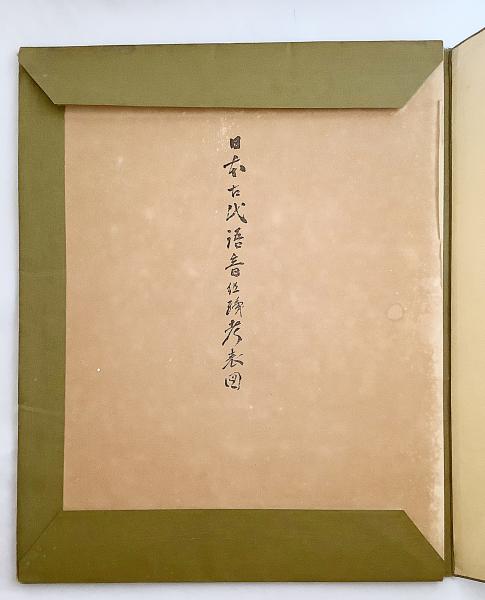 日本古代語音組織考表図